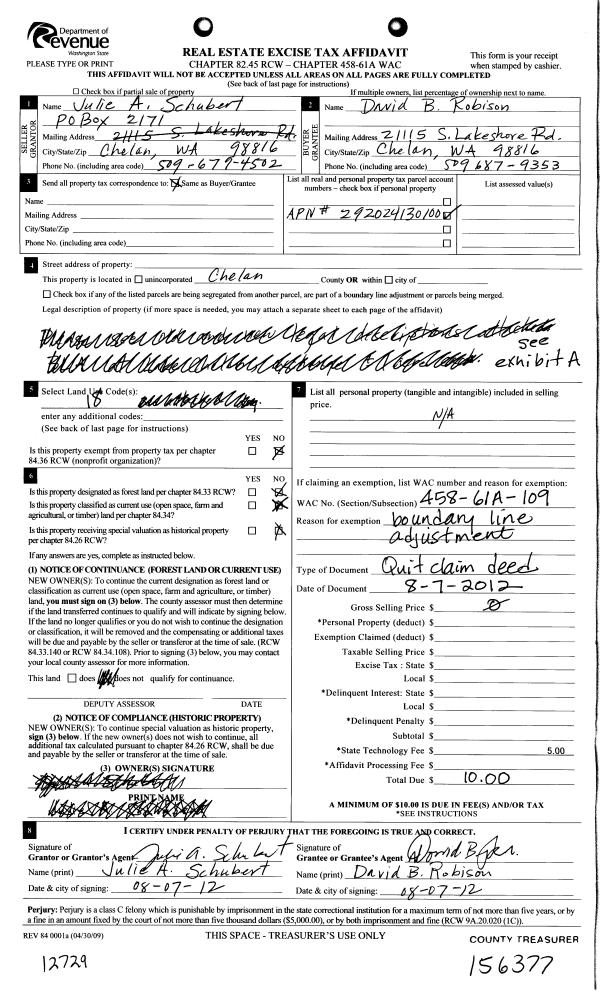 Department of
Revenue
Washington State
PLEASE TYPE OR PRINT
REAL ESTATE EXCISE TAX AFFIDAVIT
CHAPTER 82.45 RCW – CHAPTER 458-61A WAC
This form is your receipt
when stamped by cashier.
THIS AFFIDAVIT WILL NOT BE ACCEPTED UNLESS ALL AREAS ON ALL PAGES ARE FULLY COMPLETED
(See back of last page for instructions)
Check box if partial sale of property
If multiple owners, list percentage of ownership next to name.
1 Name Julie A. Schubert
PO Box 2171
SELLER GRANTOR
Mailing Address 21115 S. Lakeshore Rd.
City/State/Zip Chelan, WA 98816
Phone No. (including area code) 509-679-4502
2 Name David B. Robison
BUYER GRANTEE
Mailing Address 21115 S. Lakeshore Rd.
City/State/Zip Chelan, WA 98816
Phone No. (including area code) 509 687-9353
3 Send all property tax correspondence to: Same as Buyer/Grantee
Name
Mailing Address
City/State/Zip
Phone No. (including area code)
List all real and personal property tax parcel account
numbers – check box if personal property
APN # 292024130100
List assessed value(s)
4 Street address of property:
This property is located in unincorporated Chelan County OR within city of
Check box if any of the listed parcels are being segregated from another parcel, are part of a boundary line adjustment or parcels being merged.
Legal description of property (if more space is needed, you may attach a separate sheet to each page of the affidavit)
see
exhibit A
5 Select Land Use Code(s):
18
enter any additional codes:
(See back of last page for instructions)
YES NO
Is this property exempt from property tax per chapter
84.36 RCW (nonprofit organization)?
6 YES NO
Is this property designated as forest land per chapter 84.33 RCW?
Is this property classified as current use (open space, farm and
agricultural, or timber) land per chapter 84.34?
Is this property receiving special valuation as historical property
per chapter 84.26 RCW?
If any answers are yes, complete as instructed below.
(1) NOTICE OF CONTINUANCE (FOREST LAND OR CURRENT USE)
NEW OWNER(S): To continue the current designation as forest land or
classification as current use (open space, farm and agriculture, or timber)
land, you must sign on (3) below. The county assessor must then determine
if the land transferred continues to qualify and will indicate by signing below.
If the land no longer qualifies or you do not wish to continue the designation
or classification, it will be removed and the compensating or additional taxes
will be due and payable by the seller or transferor at the time of sale. (RCW
84.33.140 or RCW 84.34.108). Prior to signing (3) below, you may contact
your local county assessor for more information.
This land does does not qualify for continuance.
DEPUTY ASSESSOR DATE
(2) NOTICE OF COMPLIANCE (HISTORIC PROPERTY)
NEW OWNER(S): To continue special valuation as historic property,
sign (3) below. If the new owner(s) does not wish to continue, all
additional tax calculated pursuant to chapter 84.26 RCW, shall be due
and payable by the seller or transferor at the time of sale.
(3) OWNER(S) SIGNATURE
PRINT NAME
7 List all personal property (tangible and intangible) included in selling
price.
N/A
If claiming an exemption, list WAC number and reason for exemption:
WAC No. (Section/Subsection) 458-61A-109
Reason for exemption boundary line
adjustment
Type of Document Quit claim deed
Date of Document 8-7-2012
Gross Selling Price $ 0
*Personal Property (deduct) $
Exemption Claimed (deduct) $
Taxable Selling Price $
Excise Tax : State $
Local $
*Delinquent Interest: State $
Local $
*Delinquent Penalty $
Subtotal $
*State Technology Fee $ 5.00
*Affidavit Processing Fee $
Total Due $ 10.00
A MINIMUM OF $10.00 IS DUE IN FEE(S) AND/OR TAX
*SEE INSTRUCTIONS
8 I CERTIFY UNDER PENALTY OF PERJURY THAT THE FOREGOING IS TRUE AND CORRECT.
Signature of
Grantor or Grantor's Agent Julie A. Schubert
Name (print) Julie A. Schubert
Date & city of signing: 08-07-12
Signature of
Grantee or Grantee's Agent
Name (print) David B. Robison
Date & city of signing: 08-07-12
Perjury: Perjury is a class C felony which is punishable by imprisonment in the state correctional institution for a maximum term of not more than five years, or by
a fine in an amount fixed by the court of not more than five thousand dollars ($5,000.00), or by both imprisonment and fine (RCW 9A.20.020 (1C)).
REV 84 0001a (04/30/09)
THIS SPACE - TREASURER'S USE ONLY
COUNTY TREASURER
12729
156377